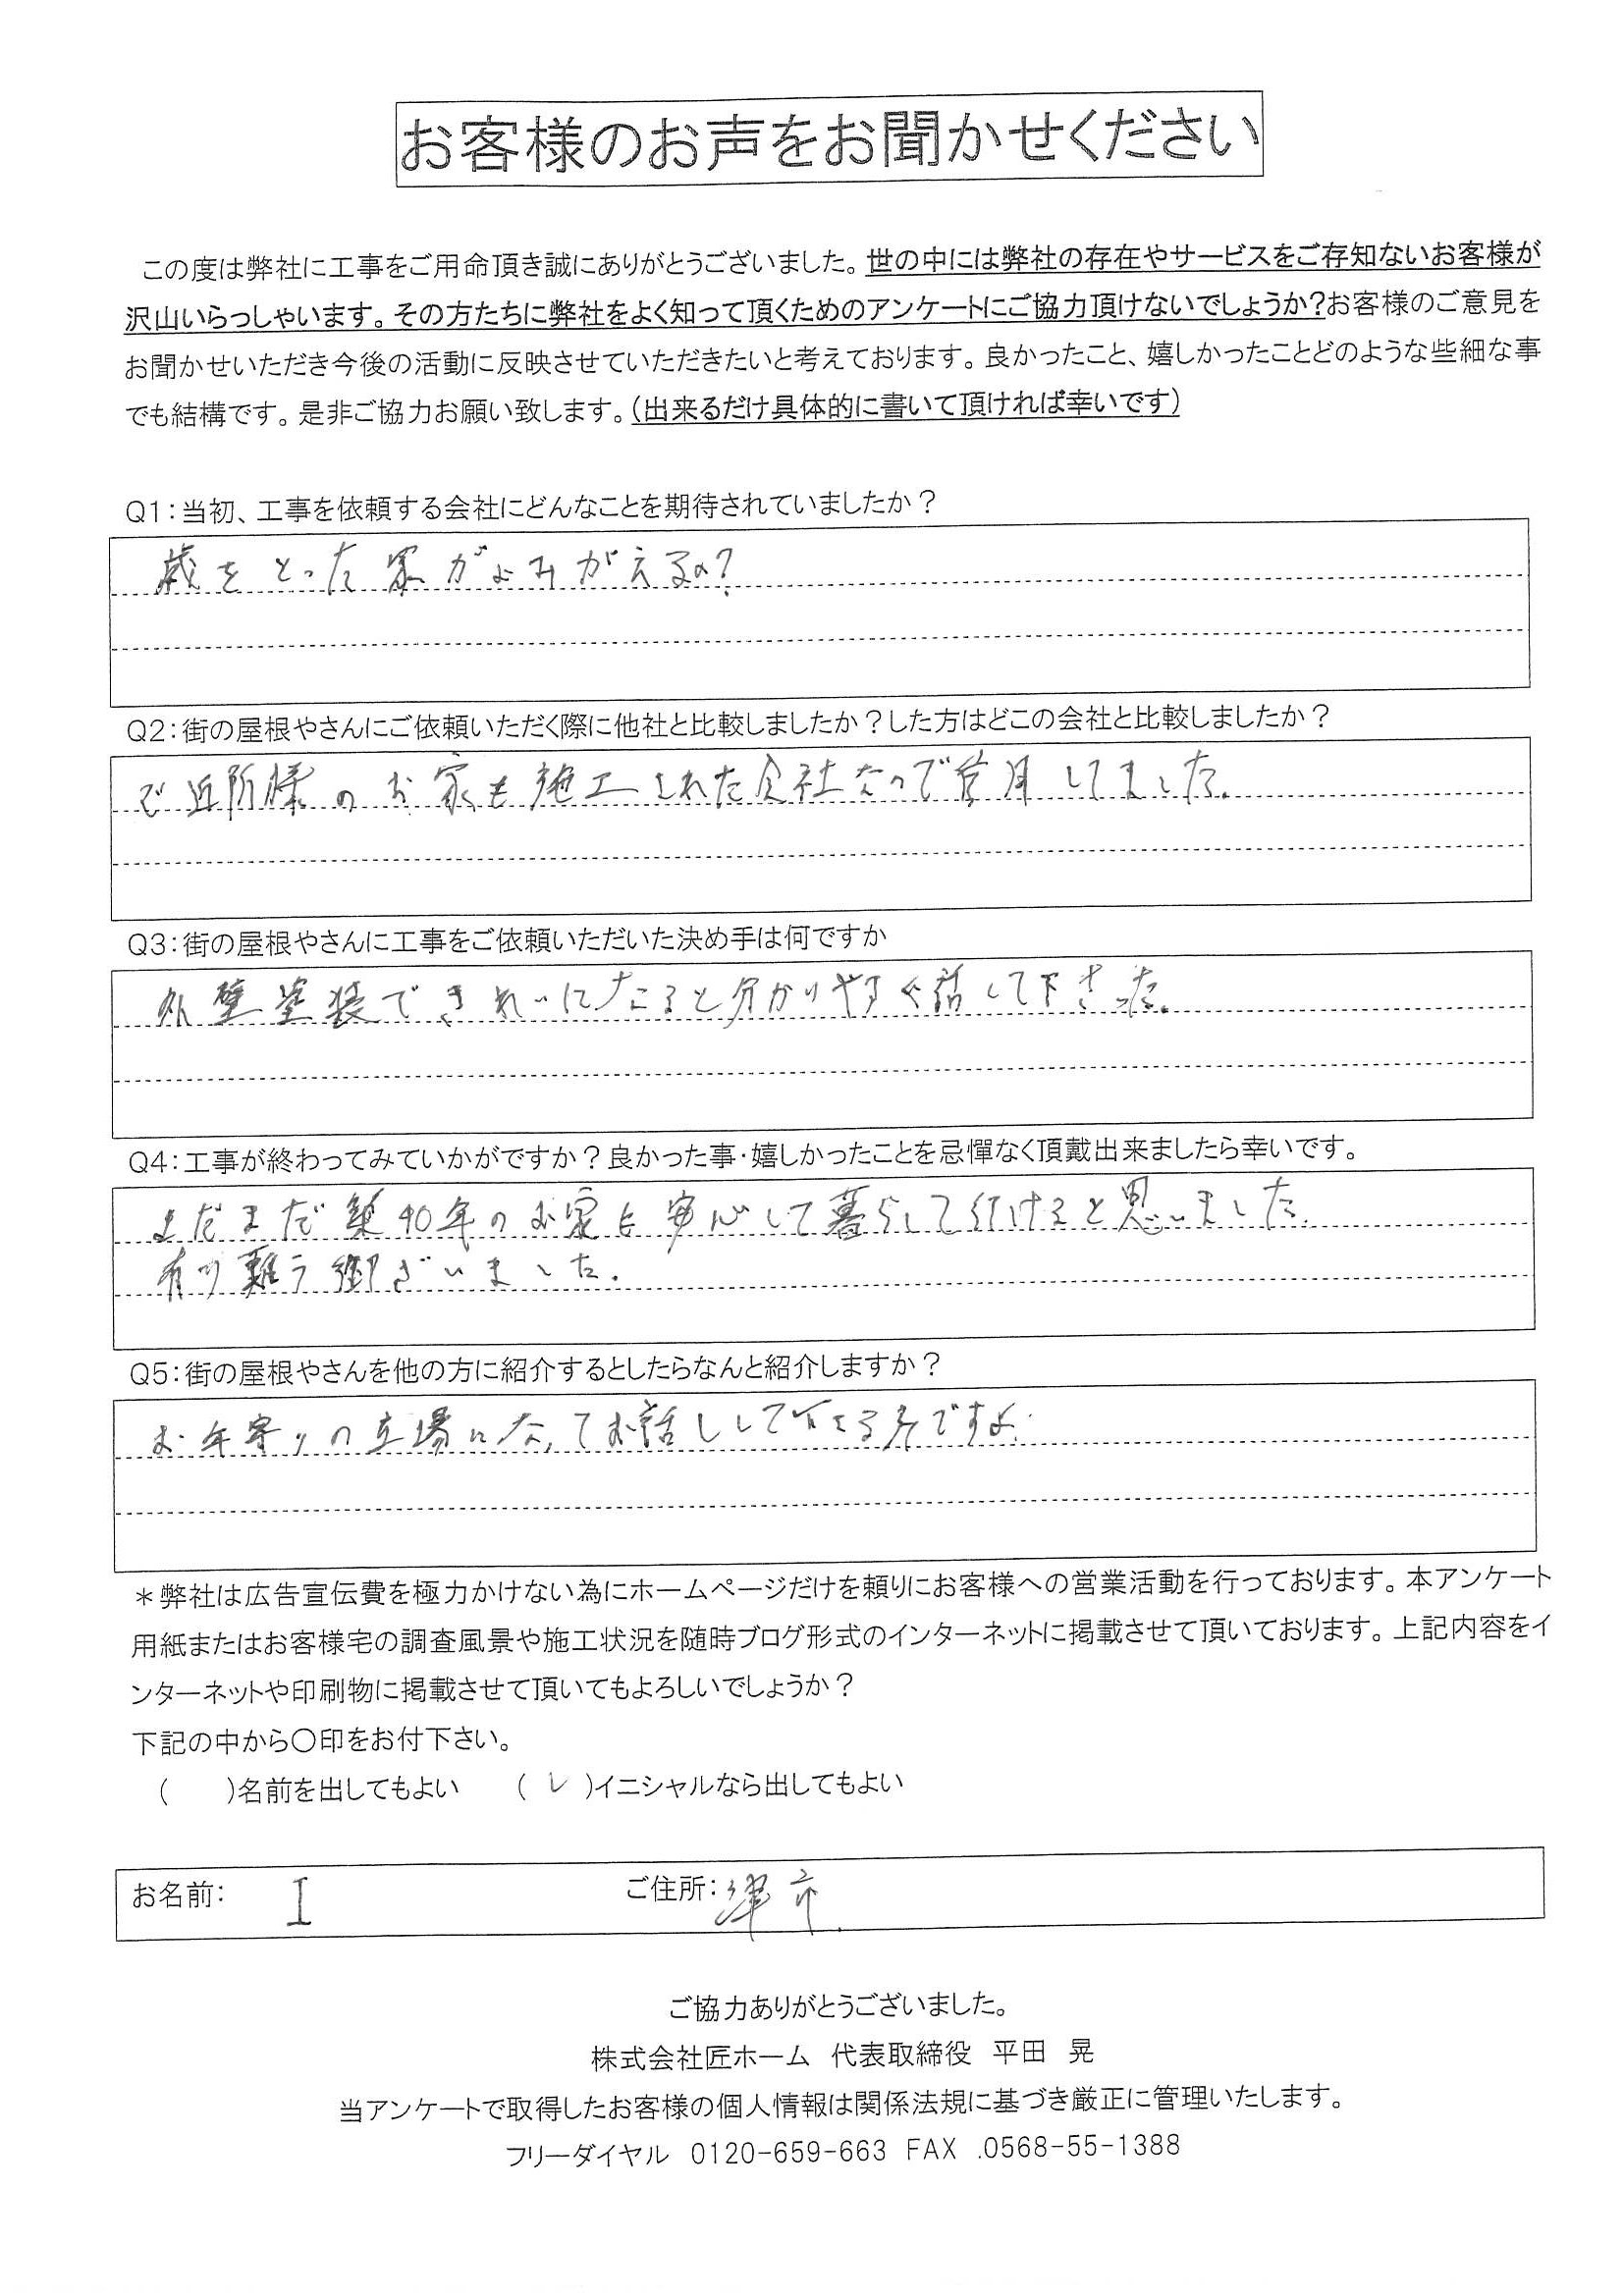 お客様のお声をお聞かせください
この度は弊社に工事をご用命頂き誠にありがとうございました。世の中には弊社の存在やサービスをご存知ないお客様が
沢山いらっしゃいます。その方たちに弊社をよく知って頂くためのアンケートにご協力頂けないでしょうか?お客様のご意見を
お聞かせいただき今後の活動に反映させていただきたいと考えております。良かったこと、嬉しかったことどのような些細な事
でも結構です。是非ご協力お願い致します。(出来るだけ具体的に書いて頂ければ幸いです)
Q1:当初、工事を依頼する会社にどんなことを期待されていましたか?
歳をとった家がよみがえるの?
Q2:街の屋根やさんにご依頼いただく際に他社と比較しましたか?した方はどこの会社と比較しましたか?
ご近所様のお家も施工された会社なので信用してました。
Q3:街の屋根やさんに工事をご依頼いただいた決め手は何ですか
外壁塗装できれいになると分かりやすく話して下さった。
Q4:工事が終わってみていかがですか?良かった事・嬉しかったことを忌憚なく頂戴出来ましたら幸いです。
まだまだ築40年のお家に安心して暮らして行けると思いました。
有り難う御ざいました。
Q5:街の屋根やさんを他の方に紹介するとしたらなんと紹介しますか?
お年寄りの立場になってお話しして下さる方ですよ。
*弊社は広告宣伝費を極力かけない為にホームページだけを頼りにお客様への営業活動を行っております。本アンケート
用紙またはお客様宅の調査風景や施工状況を随時ブログ形式のインターネットに掲載させて頂いております。上記内容をイ
ンターネットや印刷物に掲載させて頂いてもよろしいでしょうか?
下記の中から〇印をお付下さい。
(　　)名前を出してもよい　　( レ )イニシャルなら出してもよい
お名前: I　ご住所:津市
ご協力ありがとうございました。
株式会社匠ホーム 代表取締役 平田 晃
当アンケートで取得したお客様の個人情報は関係法規に基づき厳正に管理いたします。
フリーダイヤル 0120-659-663 FAX .0568-55-1388